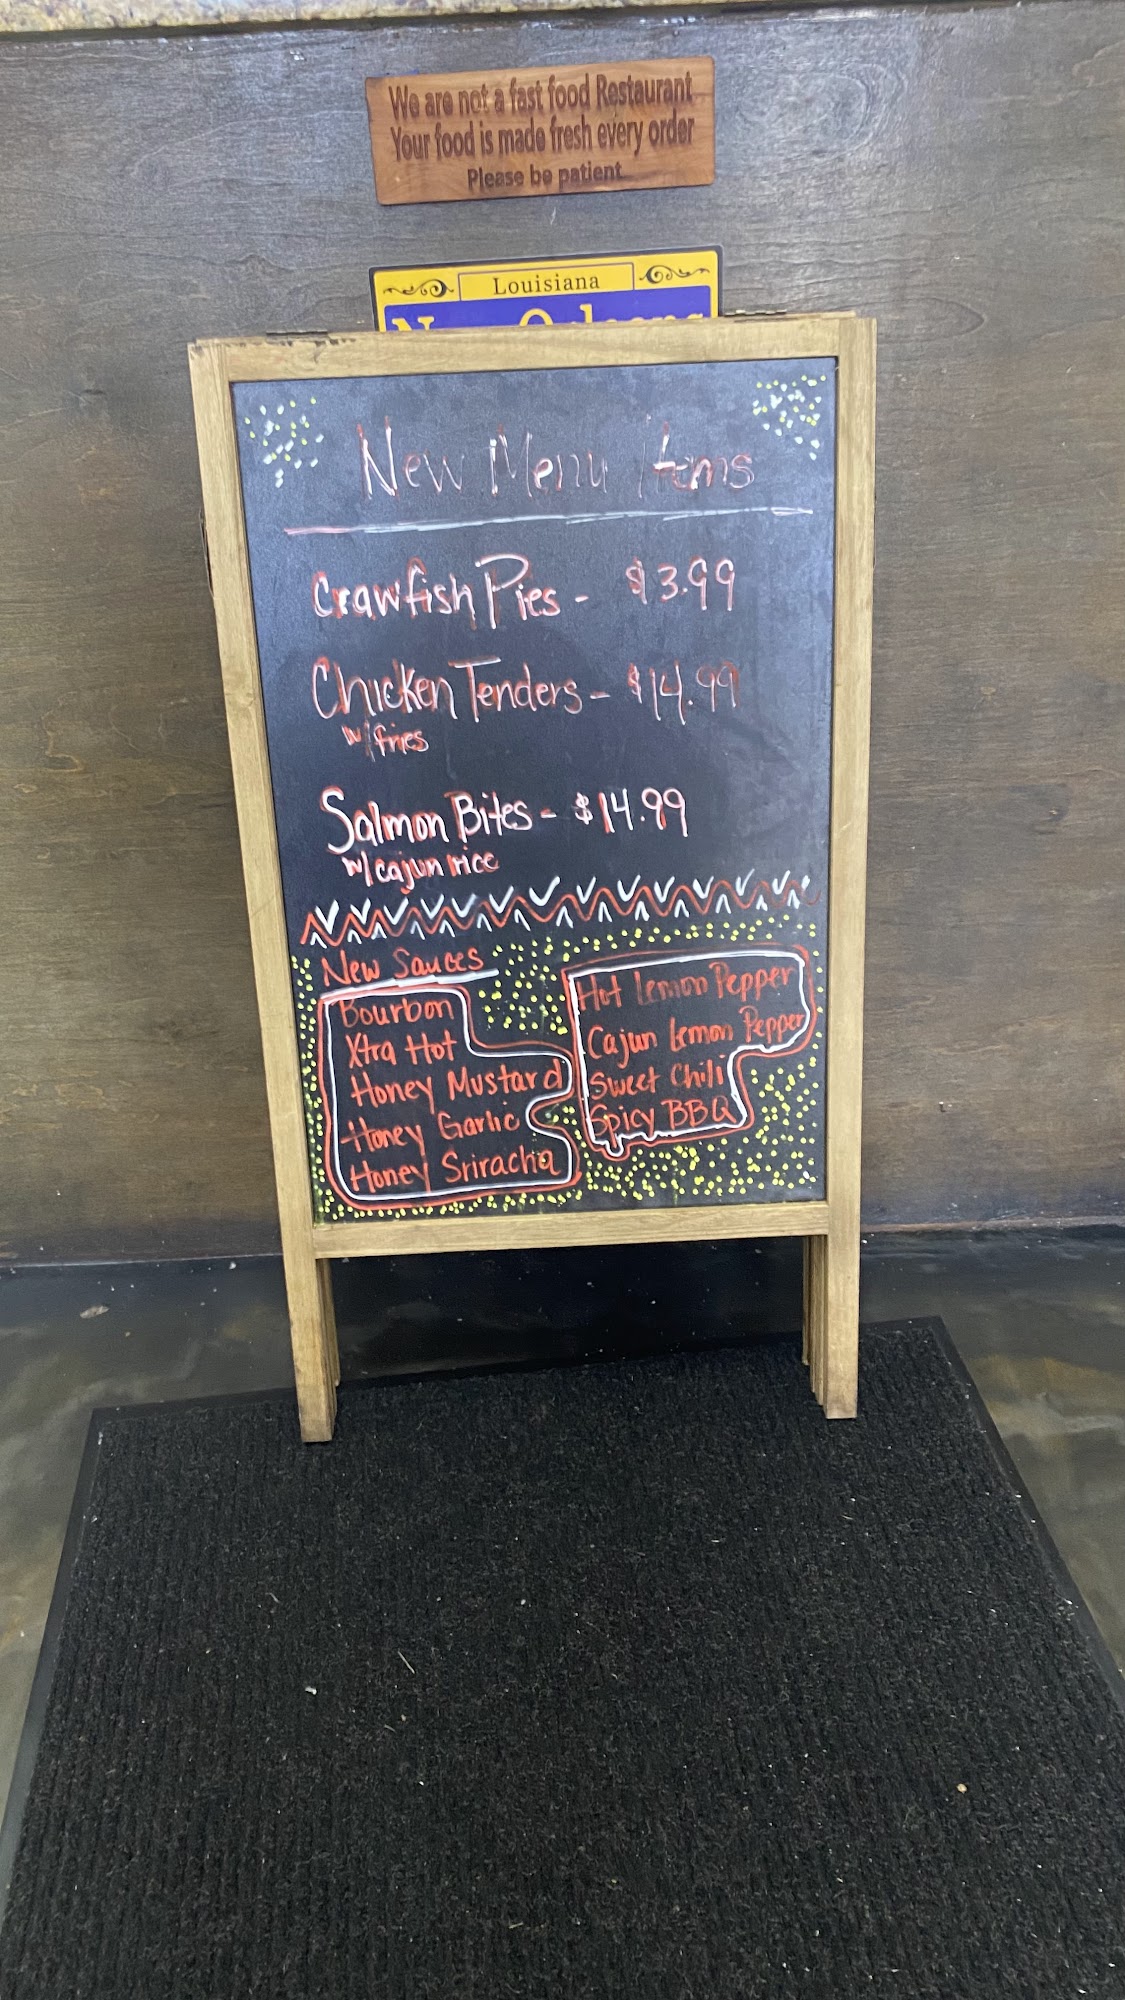 We are not a fast food Restaurant
Your food is made fresh every order
Please be patient
Louisiana
New Orleans
New Menu Items
Crawfish Pies - $3.99
Chicken Tenders - $14.99
w/fries
Salmon Bites - $14.99
w/cajun rice
New Sauces
Bourbon
Xtra Hot
Honey Mustard
Honey Garlic
Honey Sriracha
Hot Lemon Pepper
Cajun Lemon Pepper
Sweet Chili
Spicy BBQ